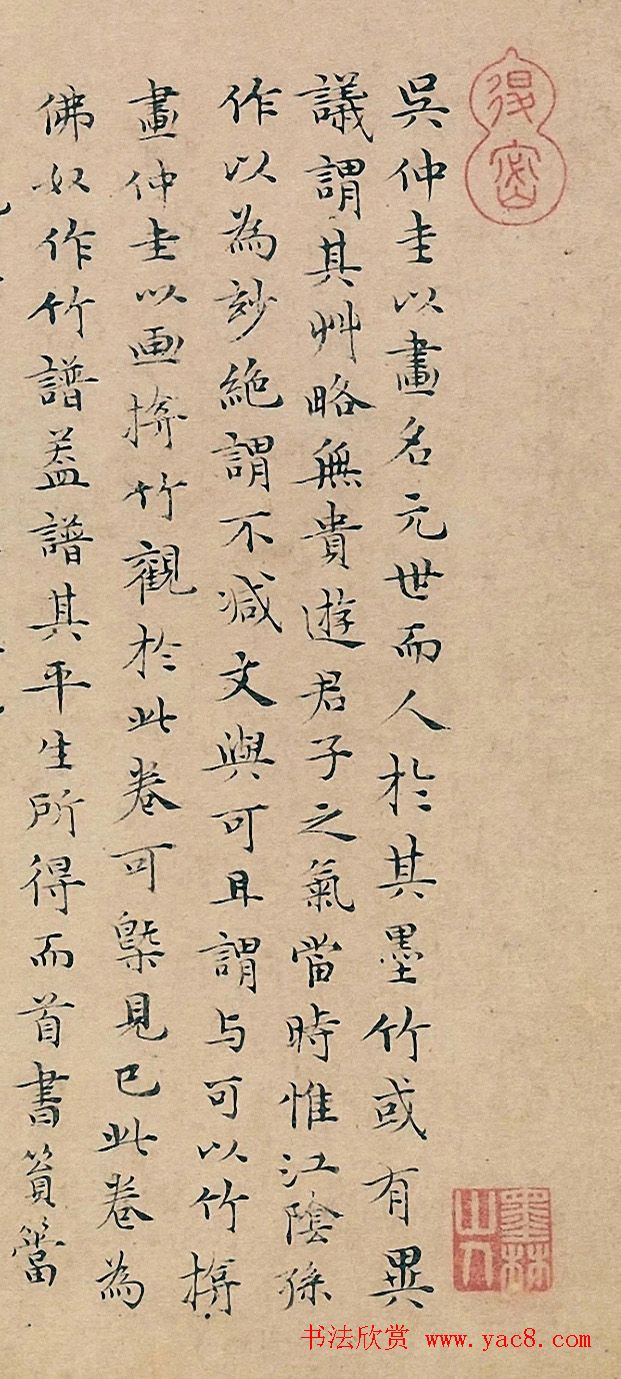 得密
吳仲圭以畫名元世而人於其墨竹或有異
議謂其艸略無貴遊君子之氣當時惟江陰孫
作以為玅絕謂不減文與可且謂与可以竹揜
畫仲圭以画揜竹觀於此卷可槩見已此卷為
佛奴作竹譜蓋譜其平生所得而首書篔簹
墨林山人
书法欣赏 www.yac8.com